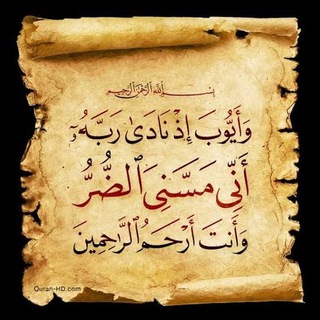 بِسْمِ ٱللَّهِ ٱلرَّحْمَٰنِ ٱلرَّحِيمِ
وَأَيُّوبَ إِذْ نَادَىٰ رَبَّهُۥٓ
أَنِّى مَسَّنِىَ ٱلضُّرُّ
وَأَنتَ أَرْحَمُ ٱلرَّٰحِمِينَ
Quran-HD.com